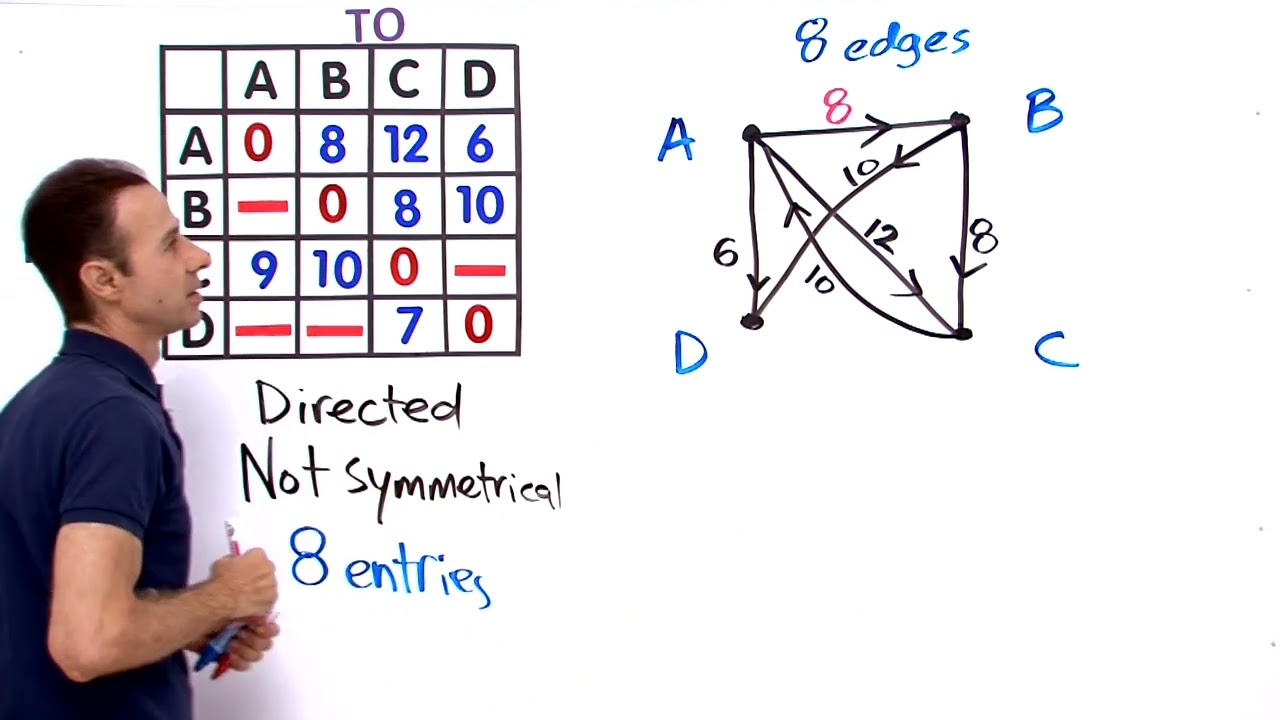 TO
A B C D
A 0 8 12 6
B — 0 8 10
9 10 0 —
D — — 7 0
Directed
Not symmetrical
8 entries
8 edges
8
A B
10
6 12 8
10
D C